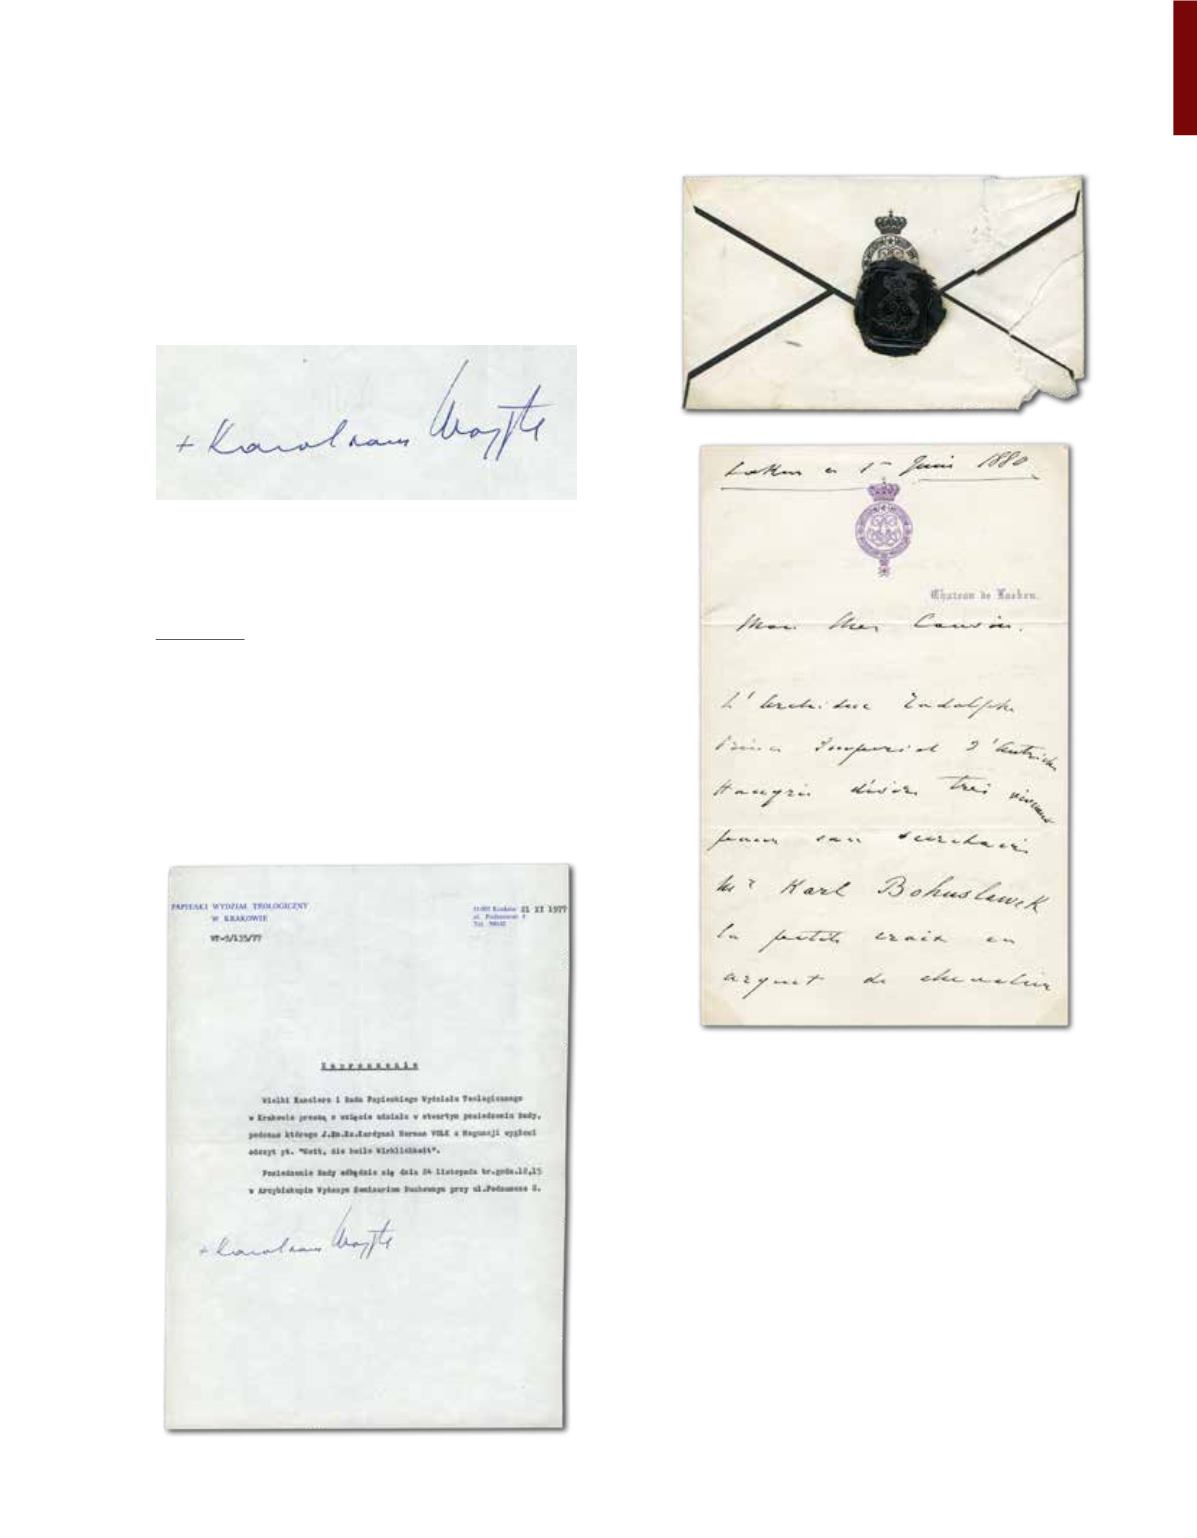 + Karol kard Wojtyła
PAPIESKI WYDZIAŁ TEOLOGICZNY
W KRAKOWIE
31-002 Kraków 21 XI 1977
ul. Podzamcze
Tel.
VT-5/135/77
Zaproszenie
Wielki Kanclerz i Rada Papieskiego Wydziału Teologicznego
w Krakowie proszą o wzięcie udziału w otwartym posiedzeniu Rady,
podczas którego J.Em.Ks.Kardynał Herman VOLK z Moguncji wygłosi
odczyt pt. "Gott, die heile Wirklichkeit".
Posiedzenie Rady odbędzie się dnia 24 listopada br.godz.12,15
w Arcybiskupim Wyższym Seminarium Duchownym przy ul.Podzamcze 8.
+ Karol kard Wojtyła
Laken 1 Juin 1880
Chateau de Laeken.
Mon cher Cousin.
L'Archiduc Rodolphe
Prince Imperial d'Autriche
Hongrie désire très vivement
pour son secretaire
Mr Karl Bohuslawek
la petite croix en
argent de chevalier